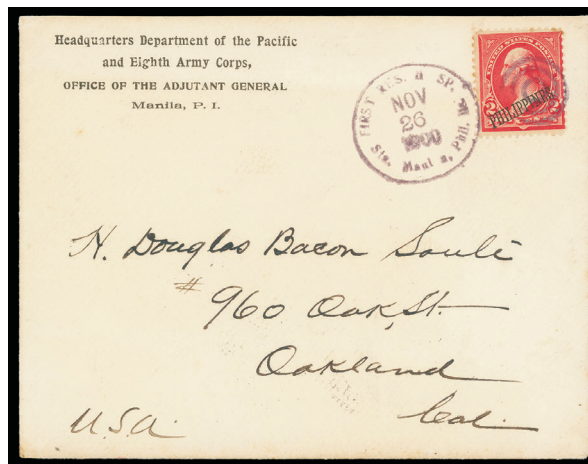 Headquarters Department of the Pacific
and Eighth Army Corps,
OFFICE OF THE ADJUTANT GENERAL
Manila, P. I.
FIRST RES. H SP.
NOV
26
1900
Sta. Manila, Phil.
UNITED STATES POSTAGE
PHILIPPINES
2 2
H. Douglas Bacon Soulé
# 960 Oak St.
Oakland
Cal.
U.S.A.